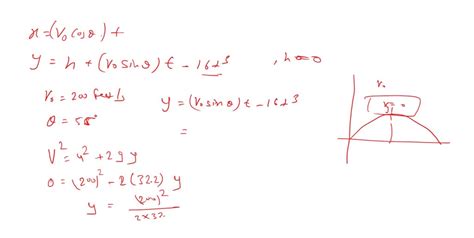 x = (V₀ cosθ) t
y = h + (V₀ sinθ) t - 16t³ , h = 0
V₀ = 200 feet/s
y = (V₀ sinθ) t - 16t³
θ = 55°
=
V² = u² + 2gy
0 = (200)² - 2(32.2) y
y = (200)² / 2×32
V₀